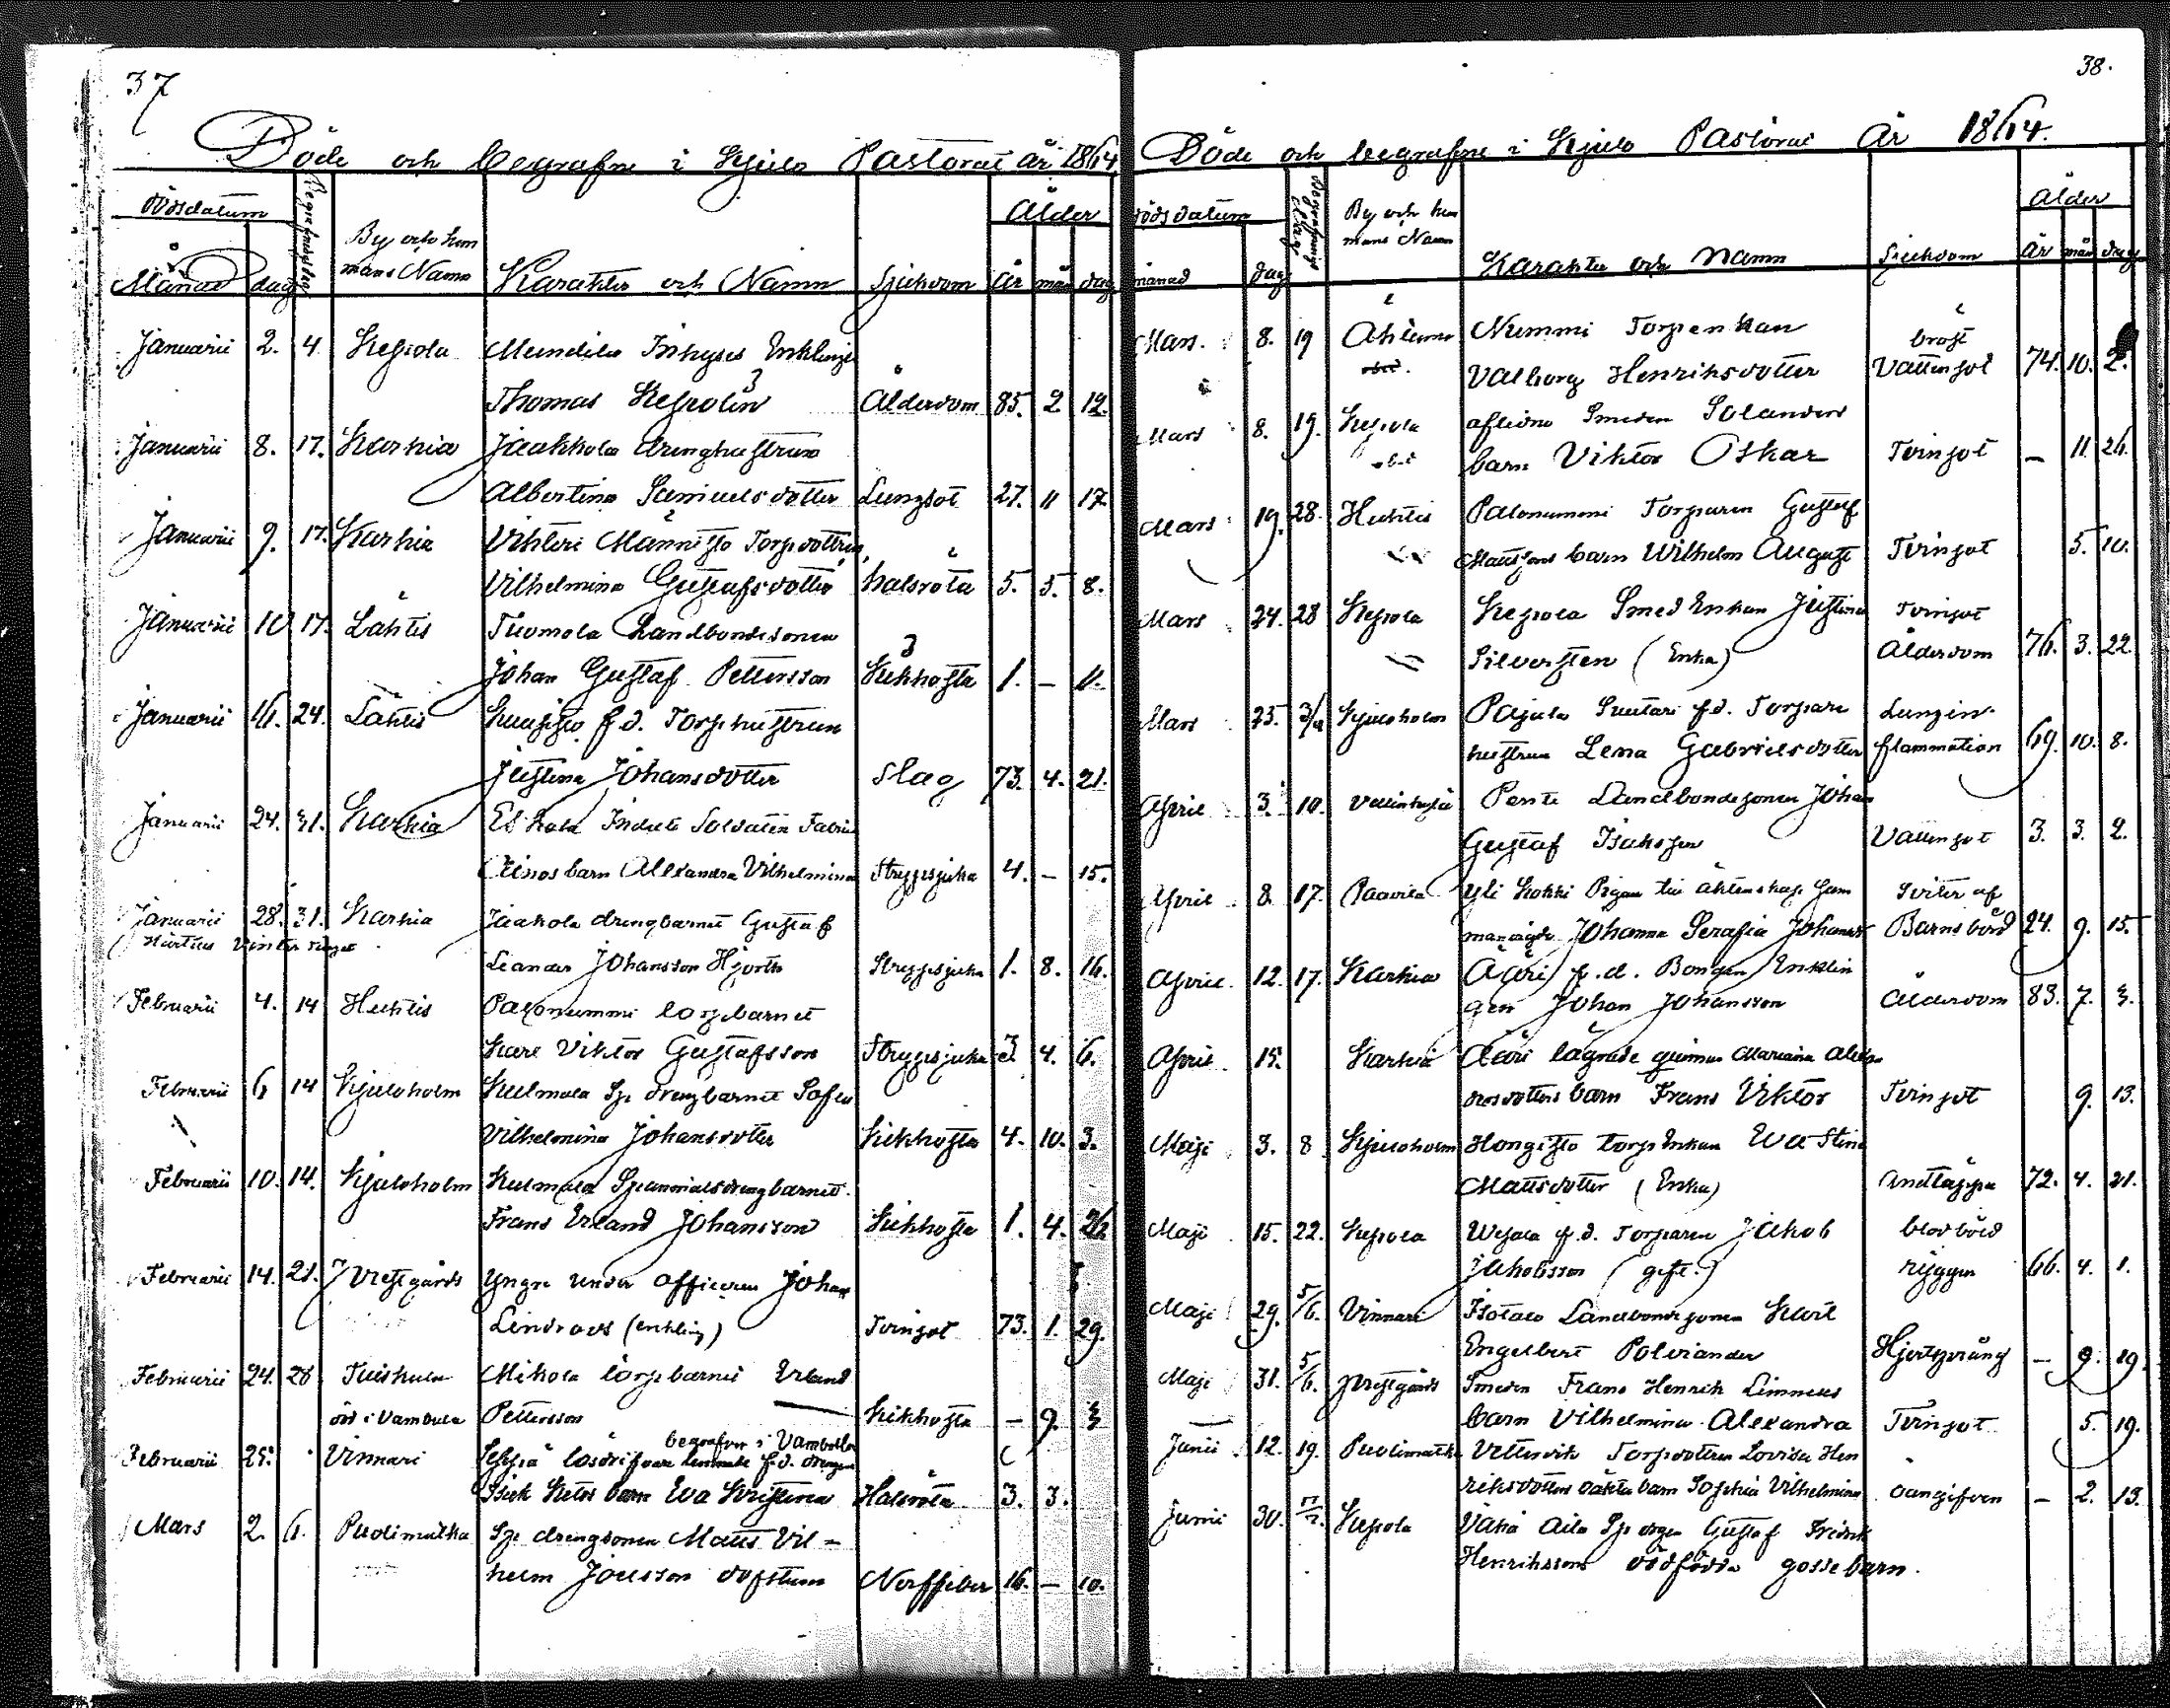 37
Döde och begrafne i Kjulo Pastorat År 1864.
Dödsdatum
Begrafningsdag
By och hem
mans Namn
Karakter och Namn
Sjukdom
Ålder
Månad dag
År mån dag
Januarii 2. 4 Kepola Mundila Inhyses Enklinge
Thomas Kepolin Ålderdom 85. 2 12.
Januarii 8. 17. Karhia Jaakkola drenghustrun
Albertina Samuelsdotter Lungsot 27. 11 17.
Januarii 9. 17. Karhia Vihteri Männisto Torpdottren,
Vilhelmina Gustafsdotter halsröta 5. 5. 8.
Januarii 10 17. Lähtis Tuomola Landbondesonen
Johan Gustaf Pettersson Kikhosta 1. –
Januarii 24. Lähtis f.d. Torphustrun
Justina Johansdotter Slag 73. 4. 21.
Januarii 24. 31. Karhia Soldaten
barn Alexandra Vilhelmina Strypsjuka 4. – 15.
Januarii 28. 31. Karhia Jaakola drengbarnet Gustaf
Hittills Vinter tinget
Leander Johansson Hjorth Strypsjuka 1. 8. 16.
Februarii 4. 14 Huhtis Palonummi torpbarnet
Karl Viktor Gustafsson Strypsjuka 3. 4. 6.
Februarii 6 14 Kjuloholm Kulmala Sp. drengbarnet Sofia
Vilhelmina Johansdotter Kikhosta 4. 10. 3.
Februarii 10. 14. Kjuloholm Kulmala drengbarnet
Frans Erland Johansson Kikhosta 1. 4. 26
Februarii 14. 21. Prestgårds Yngre under officeren Johan
Lindroos (enkling) Tvinsot 73. 1. 29.
Februarii 24. 28 Tuiskula Mikola torpbarnet Erland
död i Vambula Pettersson Kikhosta – 9. 3
begrafven i Vambula
Februarii 25. Vinnari Seppä lösdrifvare f.d. drengen
barn Eva Kristina Halsröta 3. 3.
Mars 2. 6. Puolimatka Sp. drengsonen Matts Vil-
helm Joelsson dopstum Nerffeber 16. – 10.
38.
Döde och begrafne i Kjulo Pastorat År 1864.
Dödsdatum
Begrafnings dag
By och hem
mans Namn
Karakter och Namn
Sjukdom
Ålder
månad dag
År mån dag
Mars 8. 19 Ahlamo Nummi Torpenkan bröst
Valborg Henriksdotter Vattensot 74. 10. 2.
Mars 8. 19. Kepola aflidne Smeden Solanders
barn Viktor Oskar Tvinsot – 11. 26.
Mars 19. 28. Huhtis Palonummi Torparen Gustaf
Mattssons barn Wilhelm August Tvinsot 5. 10.
Mars 24. 28 Kepola Kepola Smed Enkan Justina Tvinsot
Silversten (Enka) Ålderdom 76. 3. 22.
Mars 25. 3/4 Kjuloholm Pajula Suutari f.d. Torpare Lungin-
hustrun Lena Gabrielsdotter flammation 69. 10. 8.
April 3. 10. Pente Landbondesonen Johan
Gustaf Isaksson Vattensot 3. 3. 2.
April 8. 17. Paavila Yli Kokki Pigan till äktenskap Sviter af
Johanna Serafia Johansd Barnsbörd 24. 9. 15.
April 12. 17. Karhia Ääri f.d. Bonden Enklin
gen Johan Johansson Ålderdom 83. 7. 3.
April 15. Karhia Ääri lägrade qvinnan Mariana
dottens barn Frans Viktor Tvinsot 9. 13.
Maji 3. 8 Kjuloholm Hongisto torp Enkan Eva Stina
Mattsdotter (Enka) Andtäppa 72. 4. 21.
Maji 15. 22. Kepola f.d. Torparen Jakob blodböld
Jakobsson (gift.) ryggen 66. 4. 1.
Maji 29. 5/6. Vinnari Isotalo Landbondesonen Karl
Engelbert Polviander Hjertsprång – 9. 19.
Maji 31. 5/6. Prestgårds Smeden Frans Henrik Linneus
barn Vilhelmina Alexandra Tvinsot 5. 19.
Junii 12. 19. Puolimatka Vettervik Torpdottren Lovisa Hen
riksdotters oäkta barn Sophia Vilhelmina oangifven – 2. 13.
Junii 30. Kepola Vähä Aila Sp. drgn Gustaf Fredrik
Henrikssons dödfödda gossebarn.